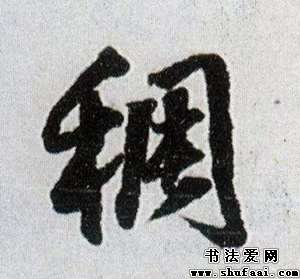 稠
书法爱网
www.shufaai.com